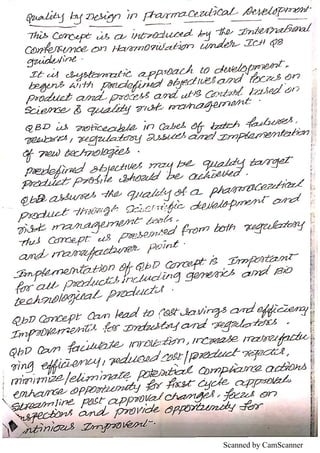 Quality by Design in pharmaceutical Development
This Concept is a introduced by the International
Conference on Harmonization under ICH Q8
guideline.
It is systematic approach to development.
begins with predefined objectives and focus on
product and process and its control based on
Science & quality risk management.
QBD is noticeable in cases of batch failures,
reworks, regulatory issues and Implementation
of new technologies.
Predefined objectives may be quality target
product profile should be achieved.
QbD assures the quality of a pharmaceutical
product through Scientific development and
risk management tools.
This concept is presented from both regulatory
and manufacturer point.
Implementation of QbD concept is Important
for all products including generics and Bio
technological products.
QbD Concept can lead to Cost Savings and efficiency
Improvements for Industry and regulators.
QbD can facilitate innovation, increase manufactu
ring efficiency, reduced cost/product rejects,
minimize/eliminate potential compliance actions
enhance opportunity for first cycle approval
Streamline post approval changes, focus on
inspections and provide opportunity for
ntinious Improvent.
Scanned by CamScanner